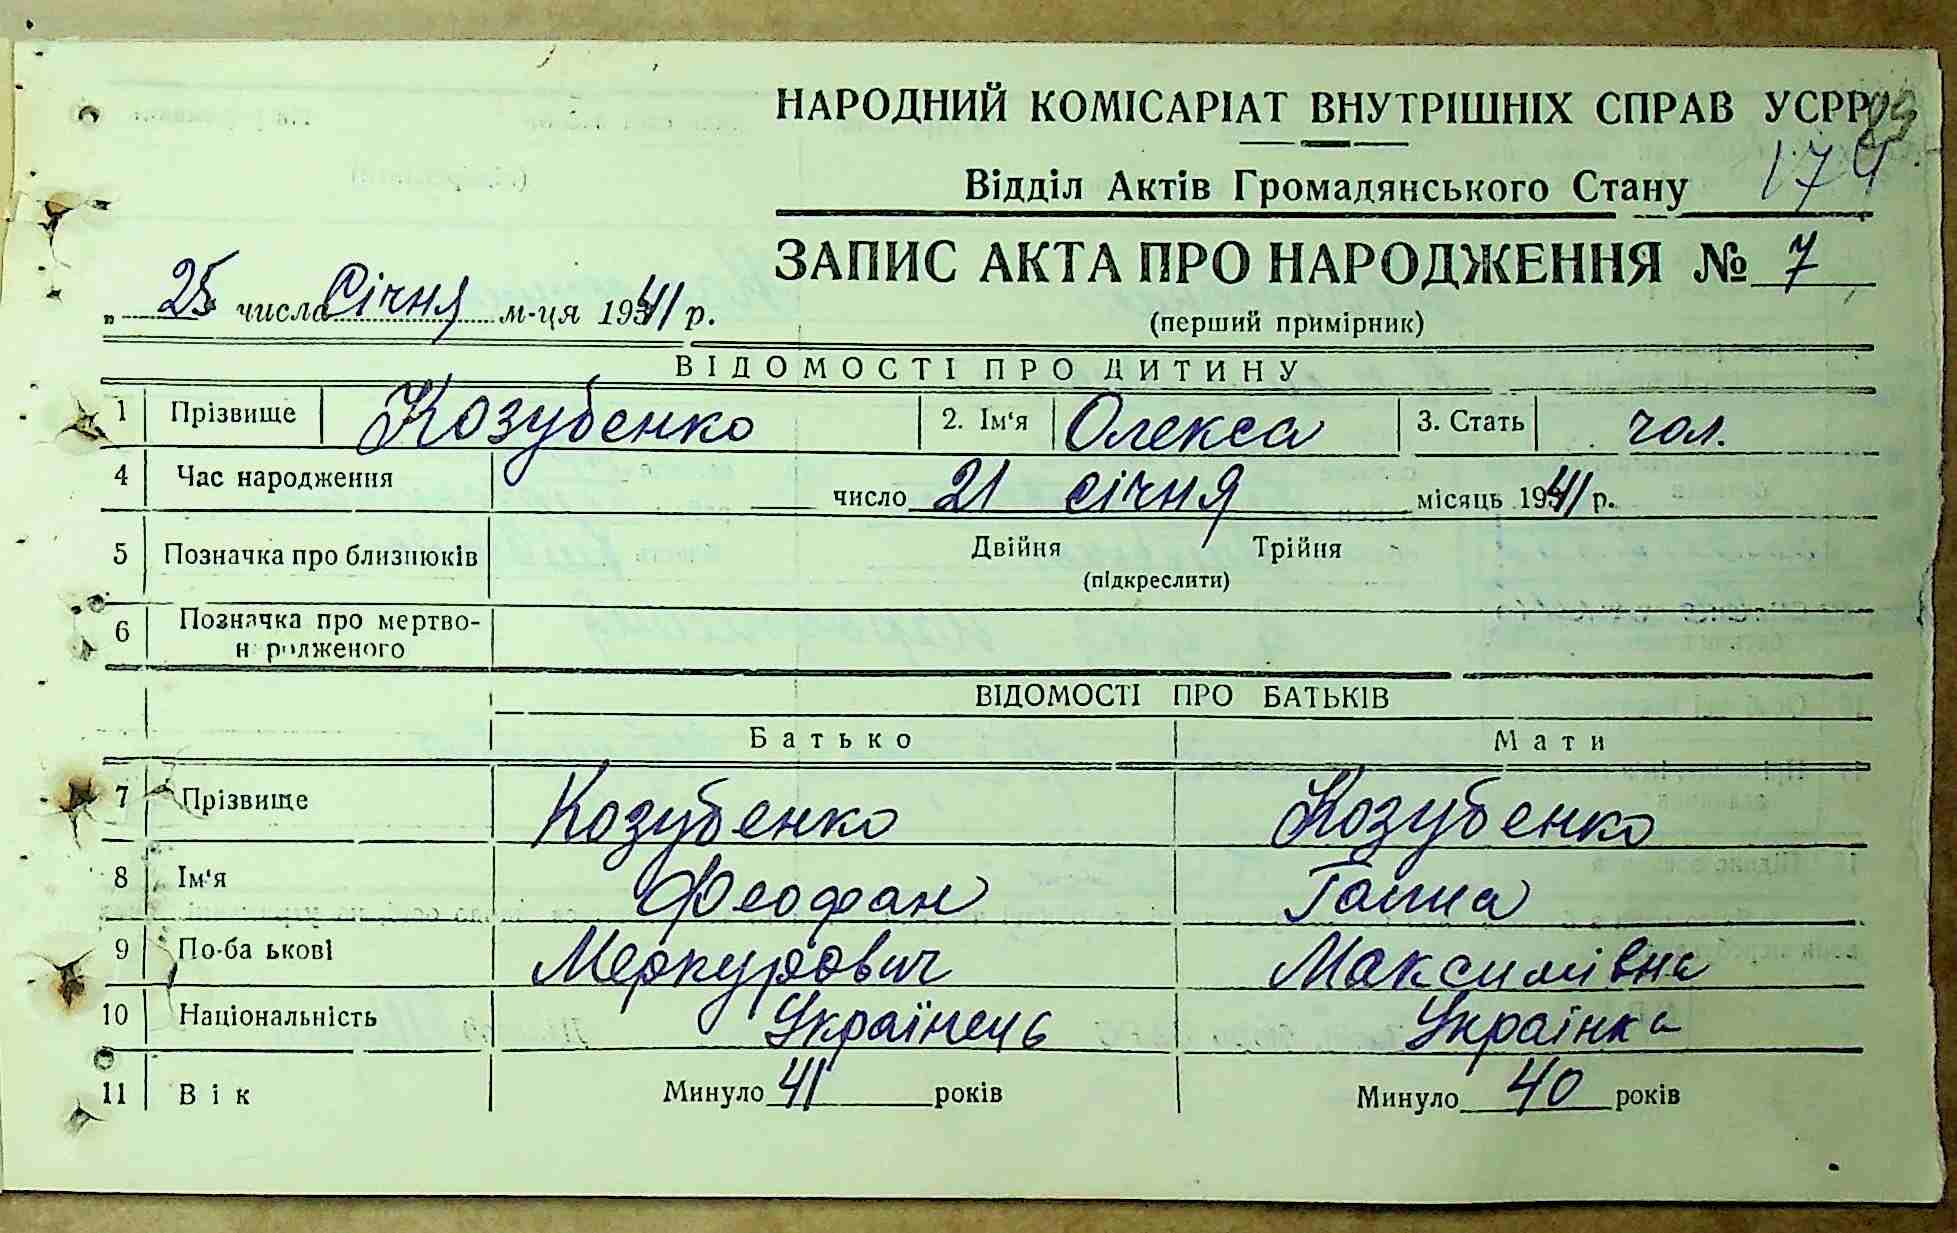 НАРОДНИЙ КОМІСАРІАТ ВНУТРІШНІХ СПРАВ УСРР
174
Відділ Актів Громадянського Стану
ЗАПИС АКТА ПРО НАРОДЖЕННЯ № 7
(перший примірник)
„ 25 числа Січня м-ця 1941 р.
ВІДОМОСТІ ПРО ДИТИНУ
1 Прізвище Козубенко 2. Ім'я Олекса 3. Стать чол.
4 Час народження число 21 січня місяць 1941 р.
5 Позначка про близнюків Двійня Трійня
(підкреслити)
6 Позначка про мертво-
н родженого
ВІДОМОСТІ ПРО БАТЬКІВ
Батько Мати
7 Прізвище Козубенко Козубенко
8 Ім'я Феофан Ганна
9 По-ба ькові Меркурович Максимівна
10 Національність Українець Українка
11 Вік Минуло 41 років Минуло 40 років